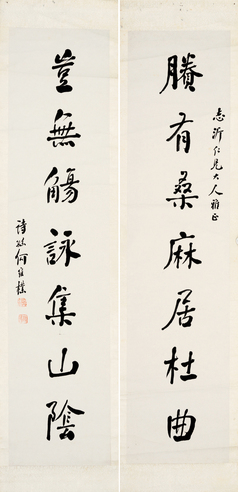 志沂仁兄大人雅正
賸有桑麻居杜曲
豈無觴詠集山陰
詩孫何維樸